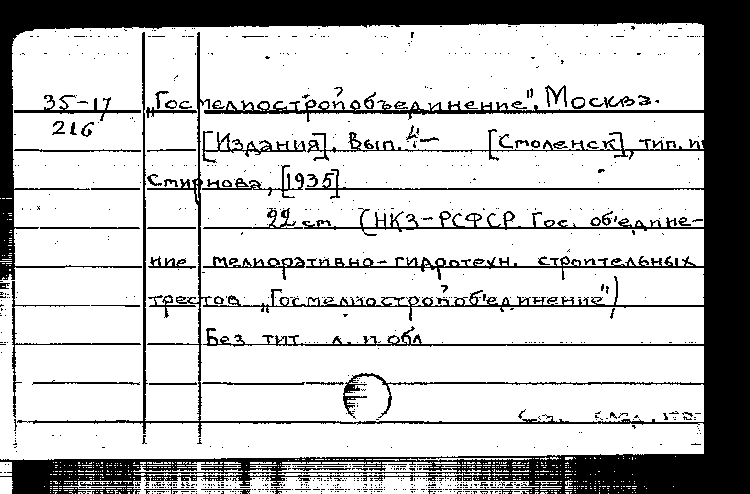 35-17
216
„Госмелиостройобъединение". Москва.
[Издания]. Вып. 4- [Смоленск], тип. и
Смирнова, [1935].
22 см. (НКЗ-РСФСР. Гос. об'едине-
ние мелиоративно-гидротехн. строительных
трестов „Госмелиостройоб'единение")
Без тит. л. и обл.
См. след.